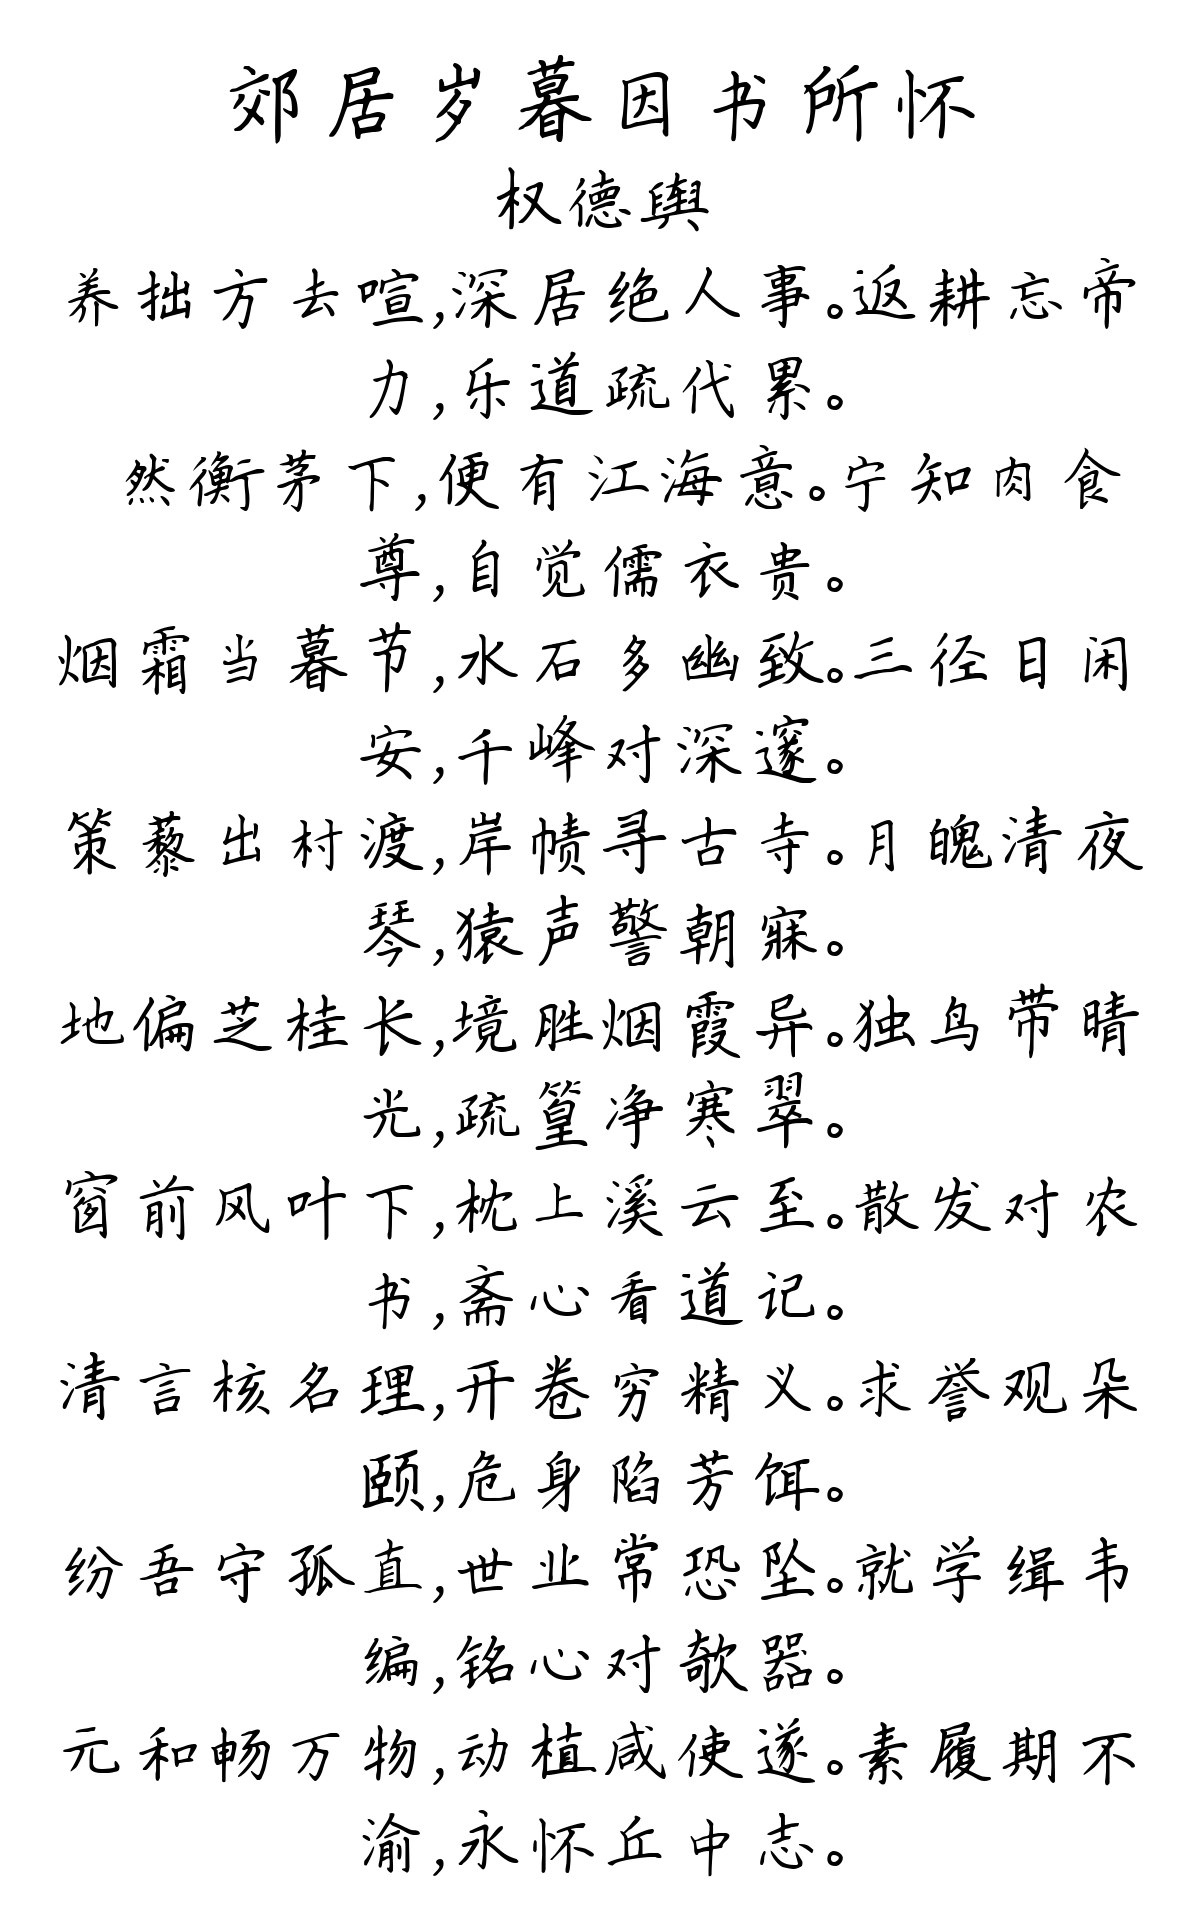 郊居岁暮因书所怀
权德舆
养拙方去喧,深居绝人事。返耕忘帝
力,乐道疏代累。
然衡茅下,便有江海意。宁知肉食
尊,自觉儒衣贵。
烟霜当暮节,水石多幽致。三径日闲
安,千峰对深邃。
策藜出村渡,岸帻寻古寺。月魄清夜
琴,猿声警朝寐。
地偏芝桂长,境胜烟霞异。独鸟带晴
光,疏篁净寒翠。
窗前风叶下,枕上溪云至。散发对农
书,斋心看道记。
清言核名理,开卷穷精义。求誉观朵
颐,危身陷芳饵。
纷吾守孤直,世业常恐坠。就学缉韦
编,铭心对欹器。
元和畅万物,动植咸使遂。素履期不
渝,永怀丘中志。